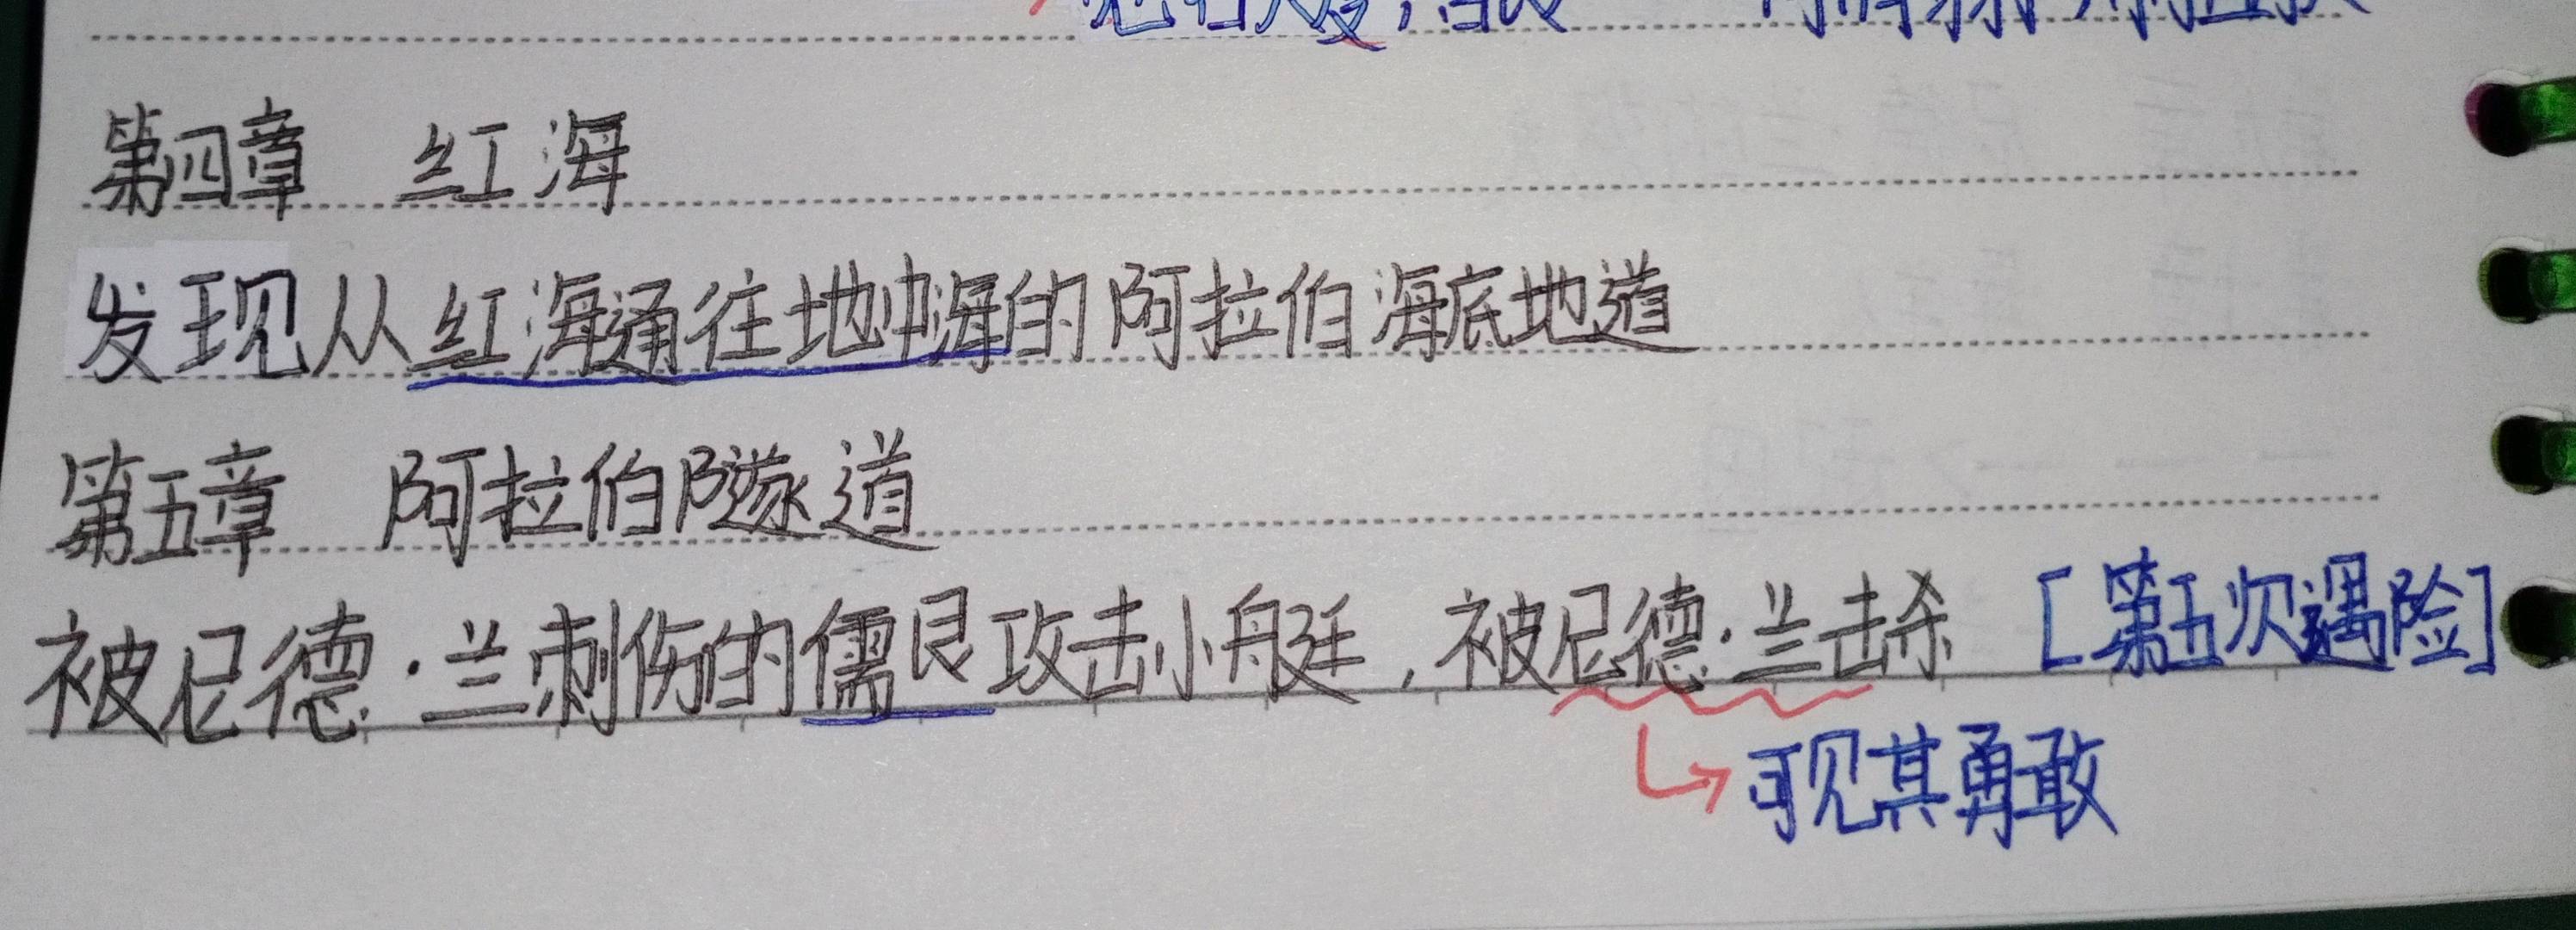 第四章 红海
发现从红海通往地中海的阿拉伯海底地道
第五章 阿拉伯隧道
被尼德·兰刺伤的儒艮攻击小艇，被尼德·兰击杀 [第五次遇险]
可见其勇敢